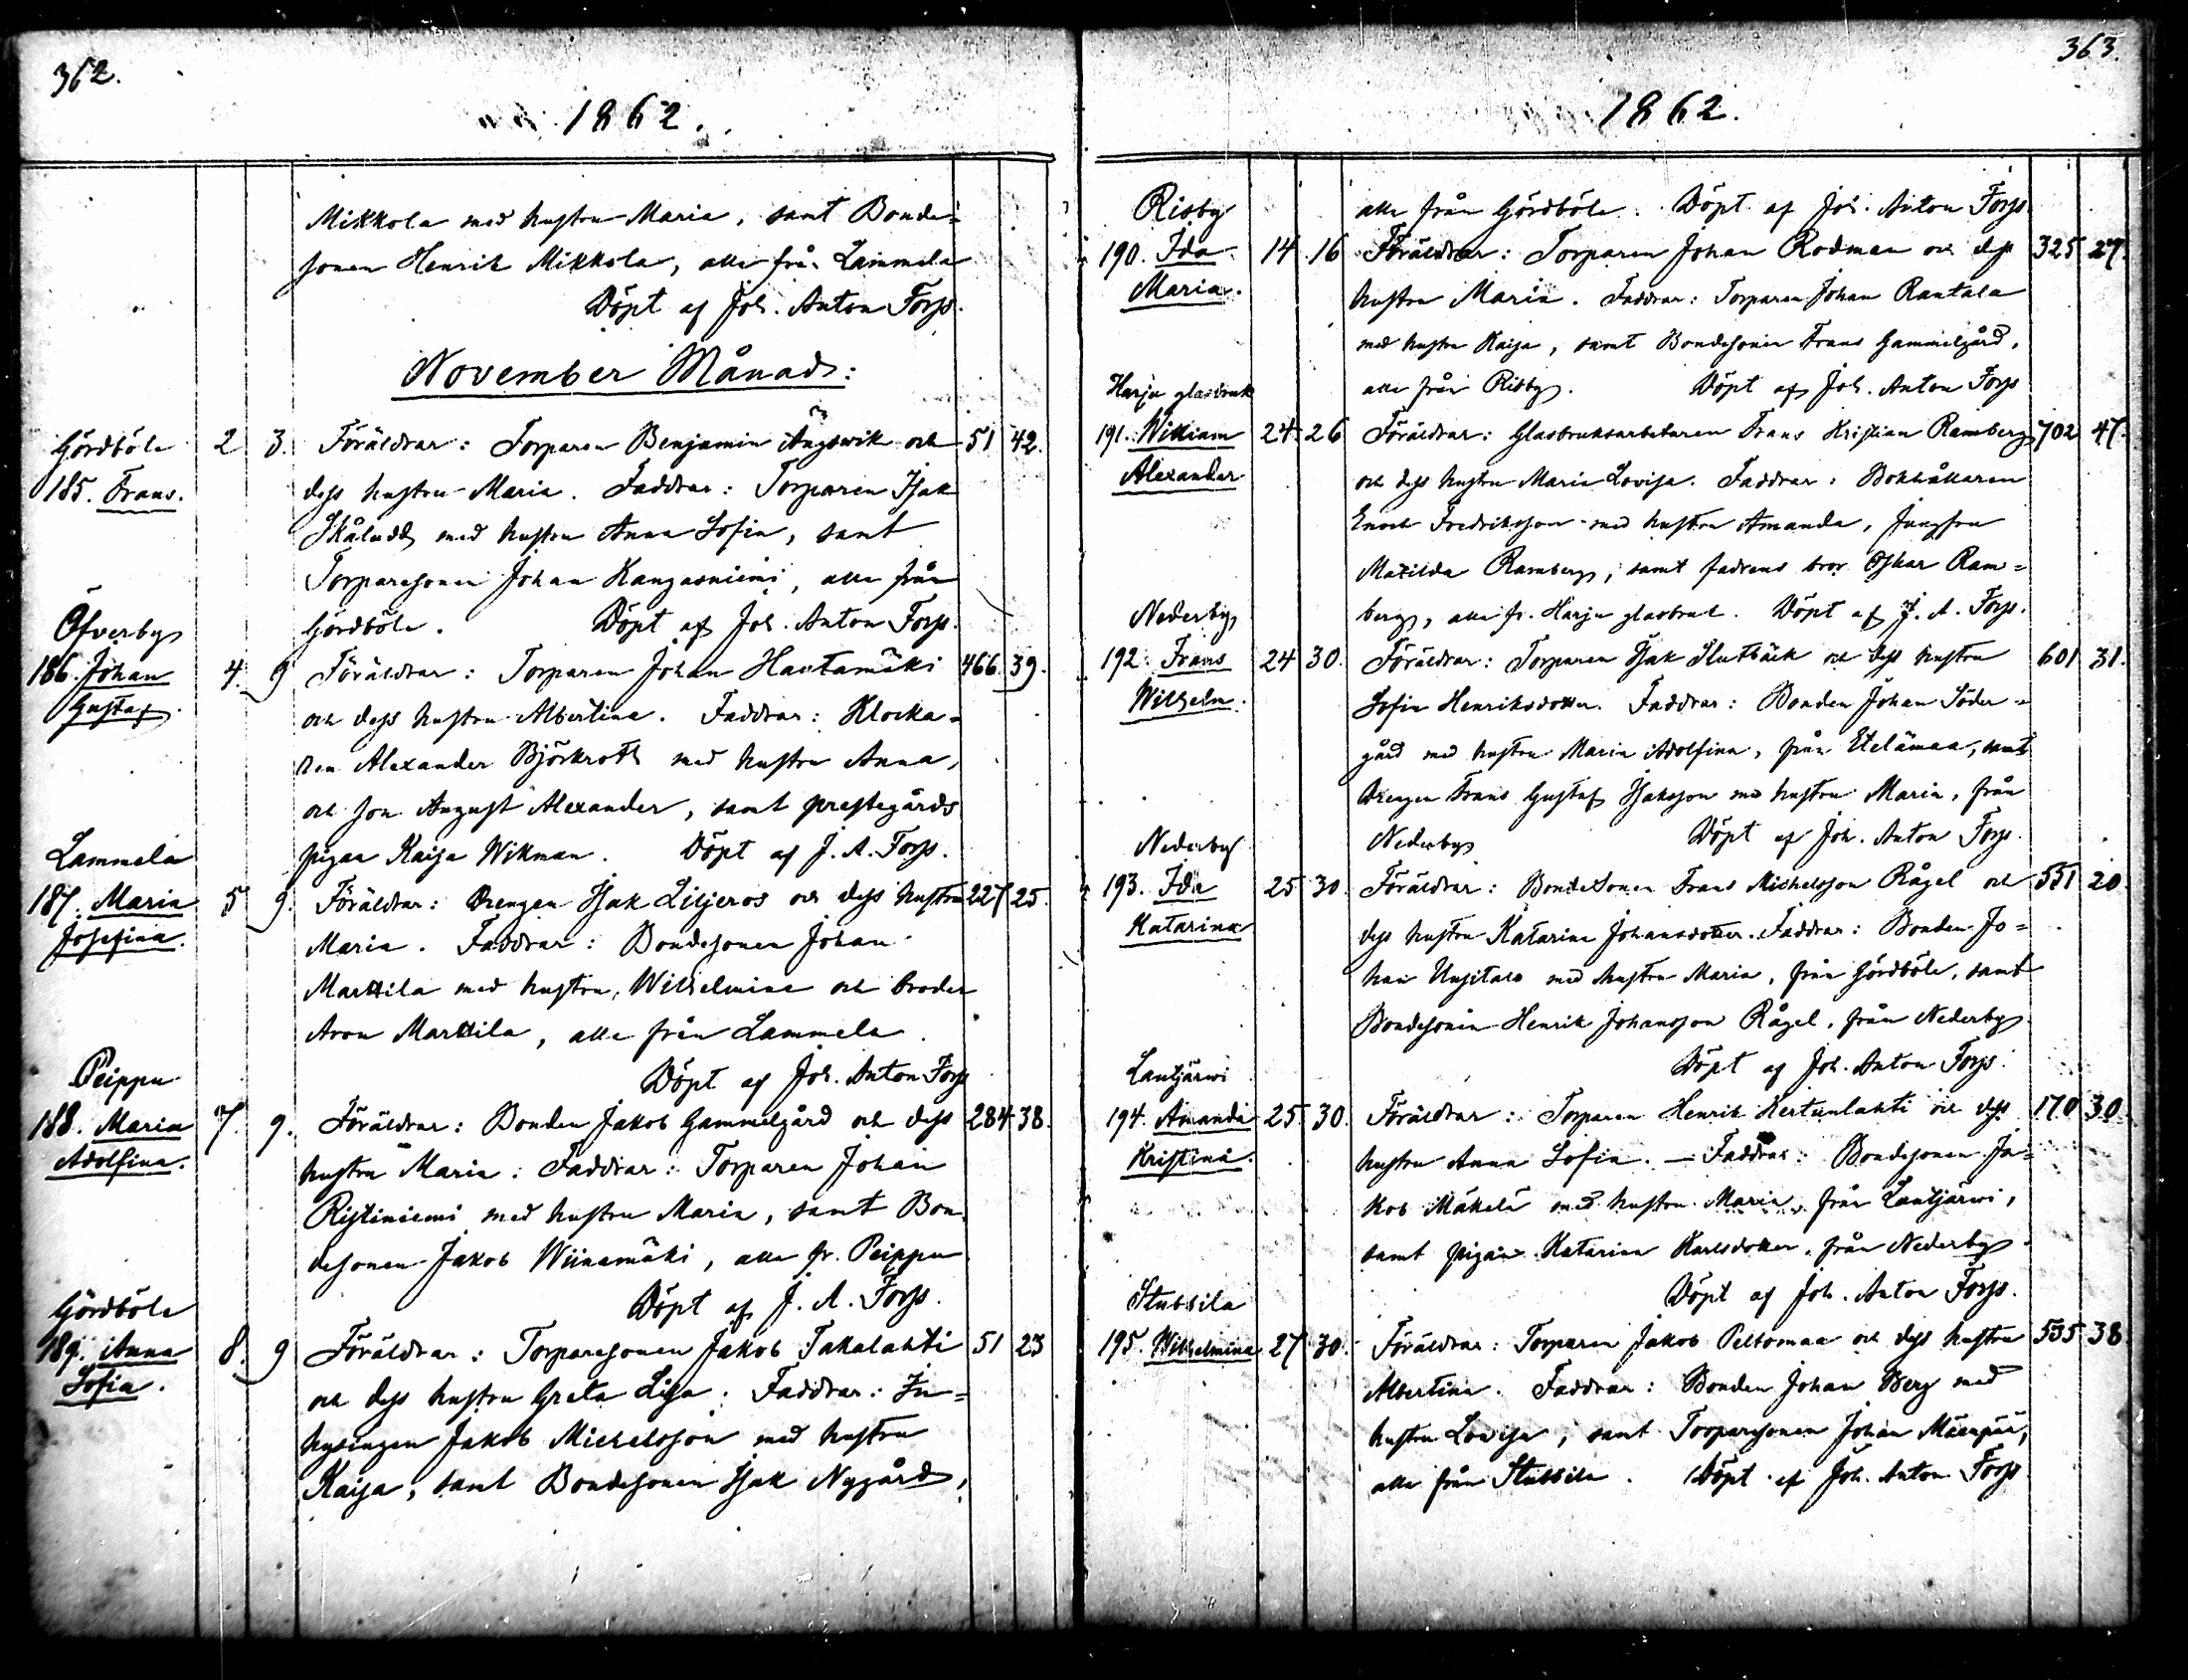 362.
1862.
Mikkola med hustru Maria, samt Bonde-
sonen Henrik Mikkola, alla från Lammela
Döpt af Joh. Anton Forss.
November Månad:
Gördböle 2 3. Föräldrar: Torparen Benjamin Ängswik och 51 42.
185. Frans. dess hustru Maria. Faddrar: Torparen Isak
Skåludd med hustru Anna Sofia, samt
Torparesonen Johan Kangasniemi, alla från
Öfverby Gördböle. Döpt af Joh. Anton Forss.
186. Johan 4. 9 Föräldrar: Torparen Johan Hautamäki 466 39.
Gustaf. och dess hustru Albertina. Faddrar: Klocka-
ren Alexander Björkroth med hustru Anna,
och son August Alexander, samt prestegårds
Lammela pigan Kaisa Wikman. Döpt af J. A. Forss.
187. Maria 5 9. Föräldrar: Drengen Isak Liljeros och dess hustru 227 25.
Josefina. Maria. Faddrar: Bondesonen Johan
Marttila med hustru, Wilhelmina och broder
Aron Marttila, alla från Lammela.
Peippu Döpt af Joh. Anton Forss
188. Maria 7. 9. Föräldrar: Bonden Jakob Gammelgård och dess 284 38.
Adolfina. hustru Maria. Faddrar: Torparen Johan
Ristiniemi med hustru Maria, samt Bon-
desonen Jakob Wiinamäki, alla fr. Peippu
Gördböle Döpt af J. A. Forss.
189. Anna 8. 9 Föräldrar: Torparesonen Jakob Takalahti 51 23
Sofia. och dess hustru Greta Lisa. Faddrar: In-
hysingen Jakob Michelsson med hustru
Kaisa, samt Bondesonen Isak Nygård,
363.
1862.
Risby alla från Gördböle. Döpt af Joh. Anton Forss
190. Ida 14 16 Föräldrar: Torparen Johan Rodman och dess 325 27.
Maria. hustru Maria. Faddrar: Torparen Johan Rantala
med hustru Kaisa, samt Bondesonen Frans Gammelgård,
Harju glasbruk alla från Risby. Döpt af Joh. Anton Forss
191. William 24. 26 Föräldrar: Glasbruksarbetaren Frans Kristian Ramberg 702 47.
Alexander och dess hustru Maria Lovisa. Faddrar: Bokhållaren
Enoch Fredriksson med hustru Amanda, Jungfru
Matilda Ramberg, samt fadrens bror Oskar Ram-
Nederby berg, alla fr. Harju glasbruk. Döpt af J. A. Forss.
192. Frans 24 30. Föräldrar: Torparen Isak Slutbäck och dess hustru 601 31.
Wilhelm. Sofia Henriksdotter. Faddrar: Bonden Johan Söder-
gård med hustru Maria Adolfina, från Etelämaa, samt
Drengen Frans Gustaf Isaksson med hustru Maria, från
Nederby Nederby Döpt af Joh. Anton Forss.
193. Ida 25 30. Föräldrar: Bondesonen Frans Michelsson Rågel och 551 20.
Katarina dess hustru Katarina Johansdotter. Faddrar: Bonden Jo-
han Uusitalo med hustru Maria, från Gördböle, samt
Bondesonen Henrik Johansson Rågel, från Nederby
Lautjärwi Döpt af Joh. Anton Forss.
194. Amanda 25. 30. Föräldrar: Torparen Henrik Kertunlahti och dess 170 30.
Kristina. hustru Anna Sofia. — Faddrar: Bondesonen Ja-
kob Mäkelä med hustru Maria, från Lautjärwi,
samt pigan Katarina Karlsdotter, från Nederby
Stubbila Döpt af Joh. Anton Forss.
195. Wilhelmina 27 30. Föräldrar: Torparen Jakob Peltomaa och dess hustru 535 38
Albertina. Faddrar: Bonden Johan Berg med
hustru Lovisa, samt Torparesonen Johan Mäenpää,
alla från Stubbila. Döpt af Joh. Anton Forss